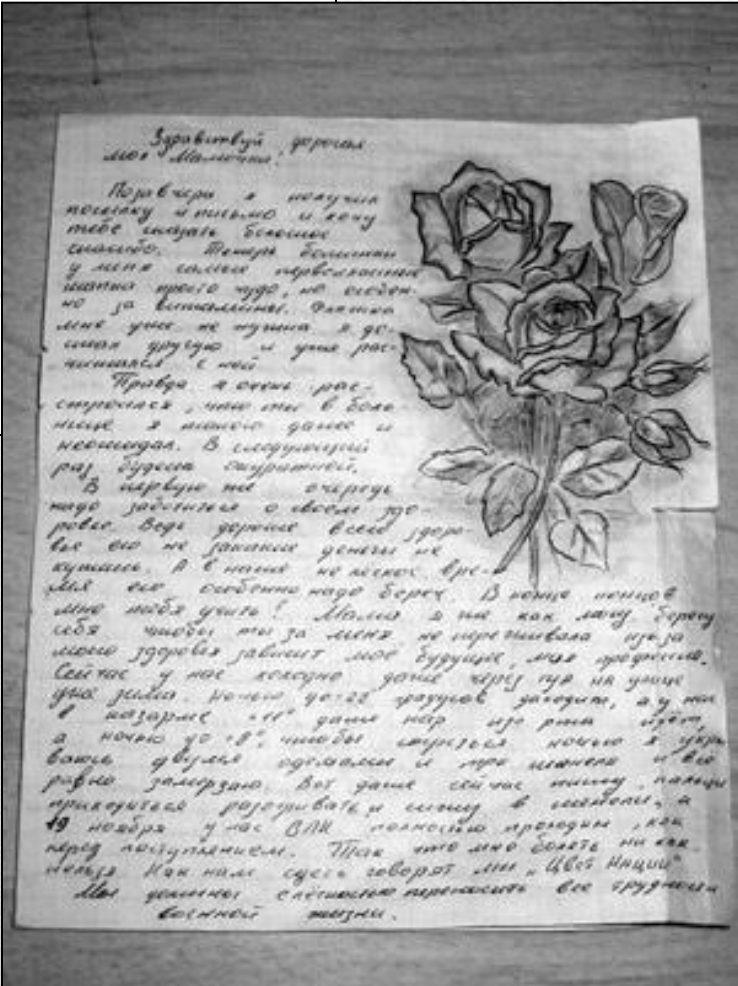 Здравствуй дорогая
моя Мамочка!
Позавчера я получил
посылку и письмо и хочу
тебе сказать большое
спасибо. Теперь ботинки
у меня самые первоклассные
шапка просто чудо, но особен-
но за витамины. Флешка
мне уже не нужна я до-
стал другую и уже рас-
читался с ней
Правда я очень рас-
строился, что ты в боль-
нице я такого даже и
неожидал. В следующий
раз будешь акуратней.
В первую же очередь
надо заботиться о своем здо-
ровье. Ведь дороже всего здоро-
вье его не за какие деньги не
купишь. А в наше не легкое вре-
мя его особенно надо беречь. В конце концов
мне тебя учить! Мама я так как могу берегу
себя чтобы ты за меня не переживала из за
моего здоровья зависит моё будущее моя профессия.
Сейчас у нас холодно даже через чур на улице
уже зима. Ночью до -22 градусов доходит, а у нас
в казарме +11° даже пар изо рта идет,
а ночью до +8°, чтобы согреться ночью я укры
ваюсь двумя одеялами и при шинели и все
равно замерзаю. Вот даже сейчас пишу, пальцы
приходиться разогревать и сижу в шинели, а
19 ноября у нас ВЛК полностью проходим, как
перед поступлением. Так что мне болеть ни как
нельзя Как нам здесь говорят мы „Цвет Нации"
Мы должны с лёгкостью переносить все трудности
военной жизни.